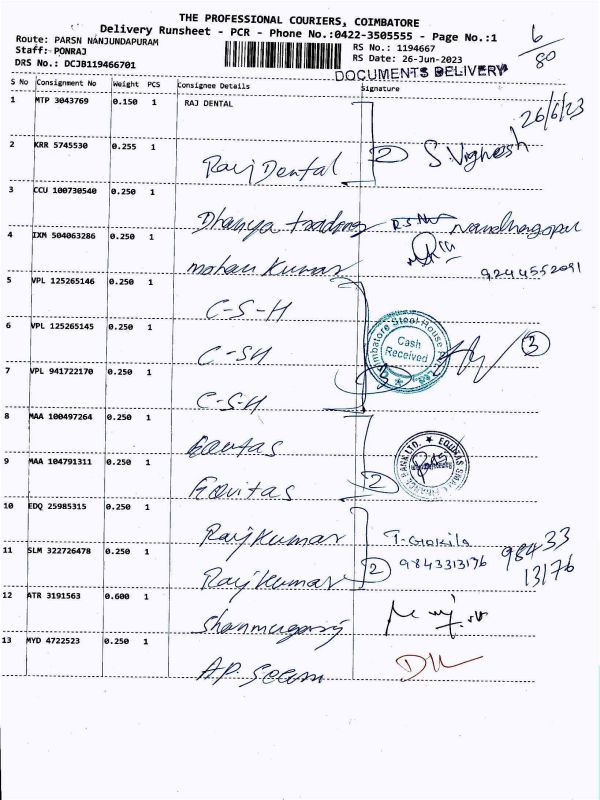 THE PROFESSIONAL COURIERS, COIMBATORE
Delivery Runsheet - PCR - Phone No.:0422-3505555 - Page No.:1
6/80
Route: PARSN NANJUNDAPURAM
Staff: PONRAJ
DRS No.: DCJB119466701
RS No.: 1194667
RS Date: 26-Jun-2023
DOCUMENTS DELIVERY
S No Consignment No Weight PCS Consignee Details Signature
1 MTP 3043769 0.150 1 RAJ DENTAL
26/6/23
2 KRR 5745530 0.255 1
Raj Dental 2 S Vignesh
3 CCU 100730540 0.250 1
Dhanya trading Nandhagopal
4 IXM 504063286 0.250 1
mohan Kumar 9244552091
5 VPL 125265146 0.250 1
C-S-H
6 VPL 125265145 0.250 1
C-SH
Coimbatore Steel House
Cash Received
3
3
7 VPL 941722170 0.250 1
C-S-H
8 MAA 100497264 0.250 1
Equitas
9 MAA 104791311 0.250 1
Equitas 2
EQUITAS SMALL FINANCE BANK LTD.
10 EDQ 25985315 0.250 1
Raj Kumar T. Gokila
11 SLM 322726478 0.250 1
9843313176
98433
13176
Raj Kumar 2
12 ATR 3191563 0.600 1
Shanmugaraj
13 MYD 4722523 0.250 1
A.P.